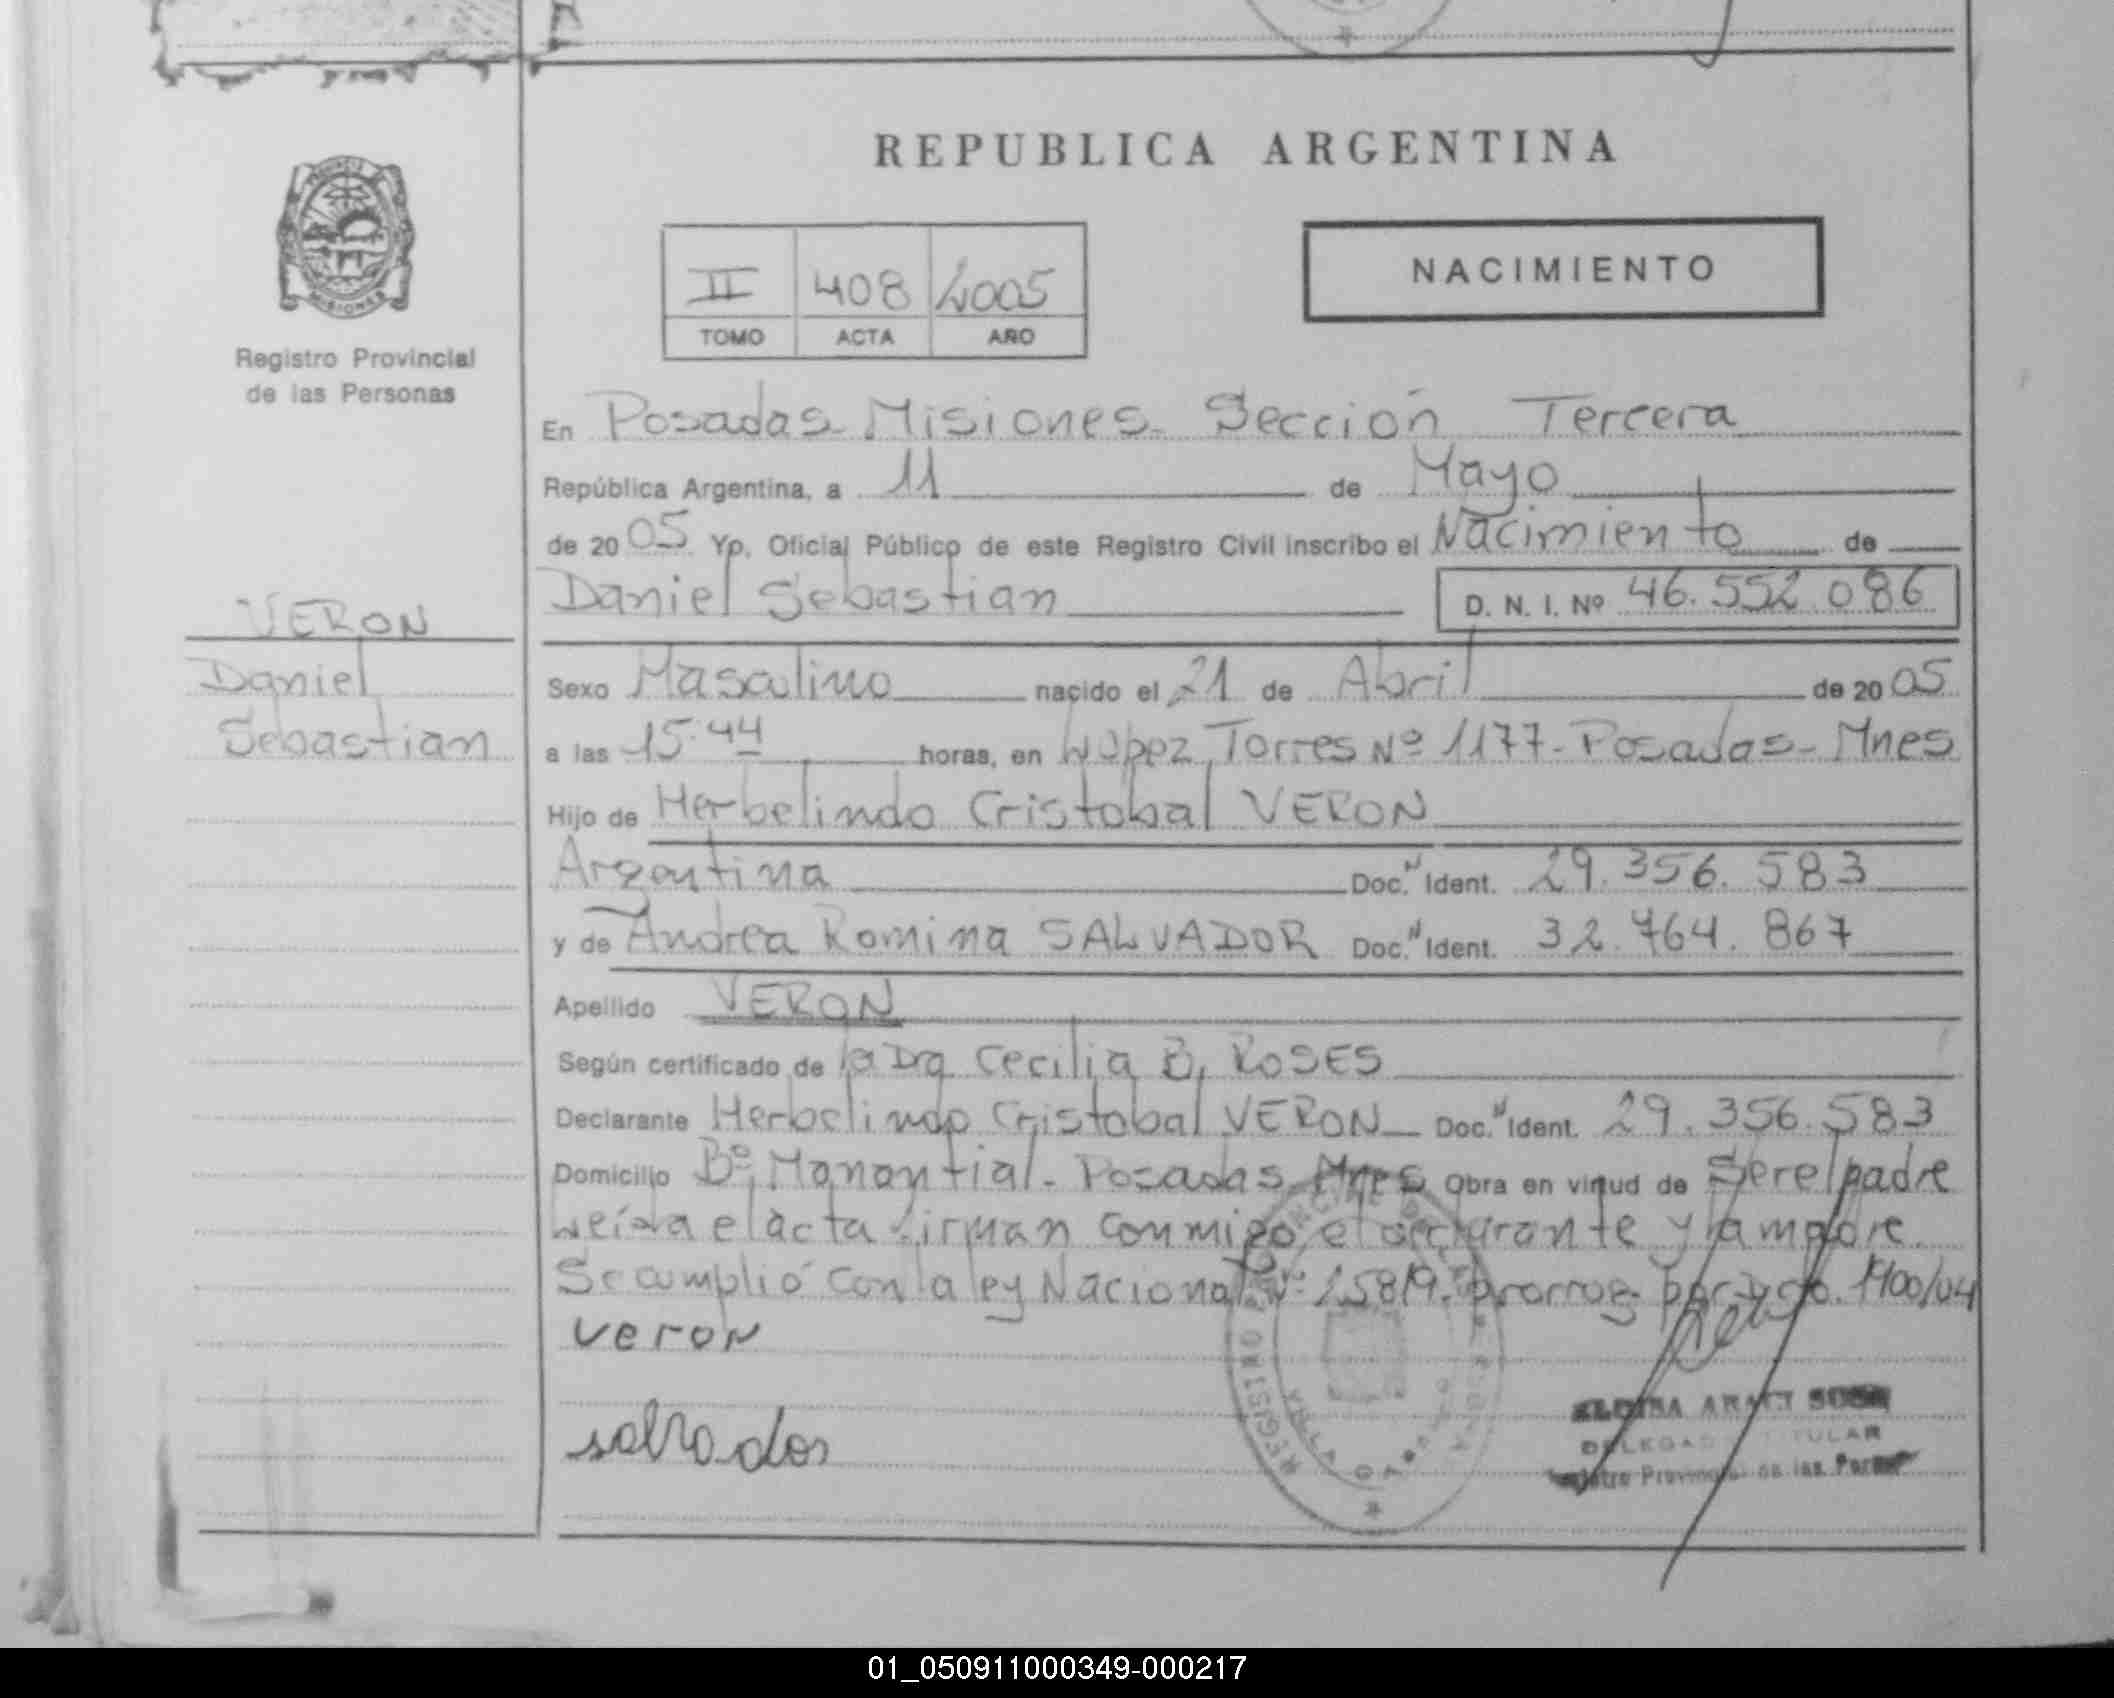 REPUBLICA ARGENTINA
II 408 2005
TOMO ACTA AÑO
NACIMIENTO
PROVINCIA DE MISIONES
Registro Provincial
de las Personas
En Posadas - Misiones - Sección Tercera
República Argentina, a 11 de Mayo
de 2005 Yo, Oficial Público de este Registro Civil inscribo el Nacimiento de
Daniel Sebastian D. N. I. Nº 46.552.086
VERON
Daniel
Sebastian
Sexo Masculino nacido el 21 de Abril de 2005
a las 15:44 horas, en López Torres Nº 1177 - Posadas - Mnes
Hijo de Herbelindo Cristobal VERON
Argentina Doc. Ident. 29.356.583
y de Andrea Romina SALVADOR Doc. Ident. 32.764.867
Apellido VERON
Según certificado de la Dra Cecilia B. ROSES
Declarante Herbelindo Cristobal VERON Doc. Ident. 29.356.583
Domicilio Bº Manantial - Posadas - Mnes Obra en virtud de Ser el padre
Leída el acta firman conmigo el declarante y la madre.
Se cumplió con la ley Nacional Nº 25819. prorrog. por 1400/04
veron
salvador
REGISTRO PROVINCIAL DE LAS
VILLA
DELEGAD TITULAR
Registro Provincial de las Person
01_050911000349-000217